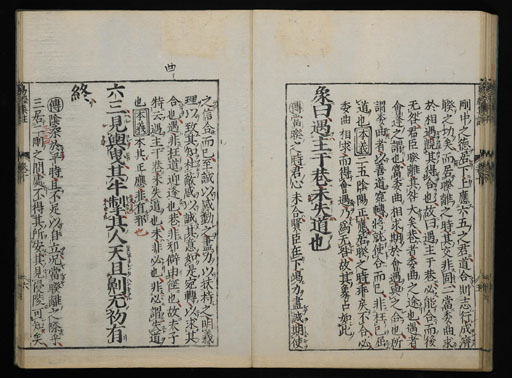 剛中之德居下上應六五之君道合則志行成濟
睽之功矣而居睽離之時其交非固二當委曲求
於相遇覬其得合也故曰遇主于巷必能合而後
无咎君臣睽離其咎大矣巷者委曲之途也遇者
會逢之謂也當委曲相求期於會遇與之合也所
謂委曲者以善道宛轉將就使合而已非枉己屈
道也本義二五陰陽正應居睽之時乖戾不合必
委曲相求而得會遇乃為无咎故其象占如此
象曰遇主于巷未失道也
傳當睽之時君心未合賢臣在下竭力盡誠期使
之信合而已至誠以感動之盡力以扶持之明義
理以致其知杜蔽惑以誠其意如是宛轉以求其
合也遇非枉道迎逢也巷非邪僻由徑也故夫子
特云遇主于巷未失道也未非必也非必謂失道
也本義本其正應非有邪也
六三見輿曳其牛掣其人天且劓无初有
終
傳陰柔於平時且不足以自立況當睽離之際乎
三居二剛之間處不得其所安其見侵陵可知矣